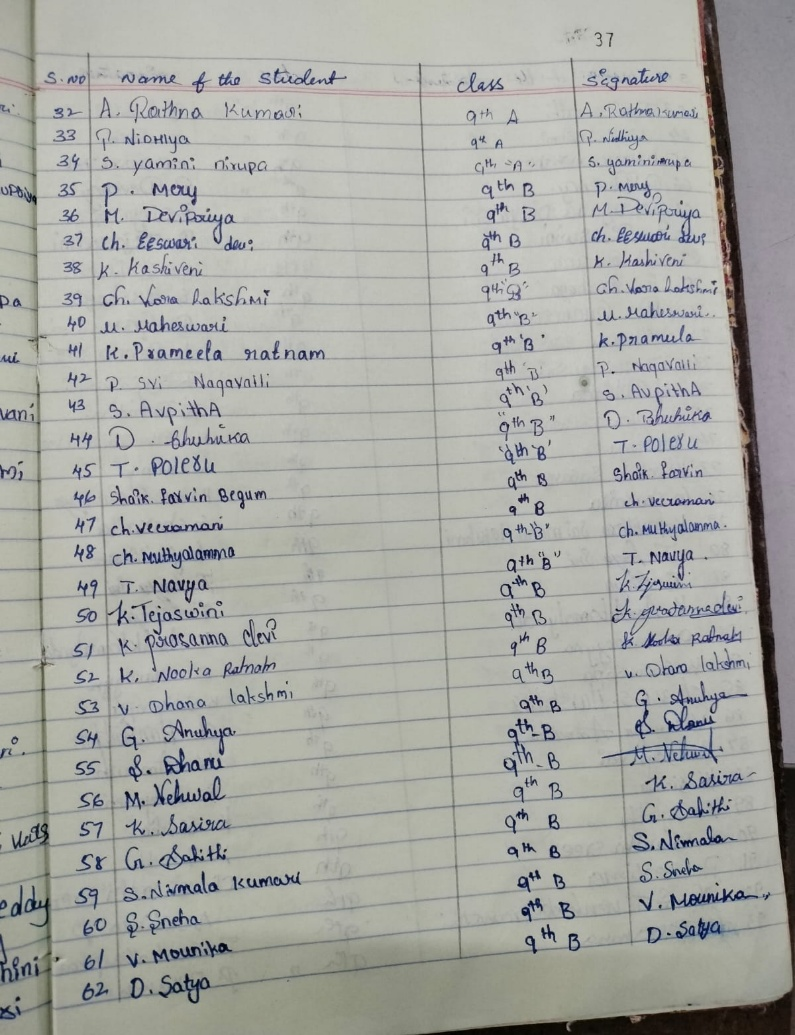 37
S.NO Name of the Student class Signature
32 A. Rathna Kumari 9th A A. Rathna Kumari
33 P. Nidhiya 9th A P. Nidhiya
34 S. yamini nirupa 9th "A" S. yamini nirupa
35 P. Mery 9th B P. Mery
36 M. Devipriya 9th B M. Devipriya
37 ch. Eeswari devi 9th B ch. Eeswari devi
38 K. Kashiveni 9th B K. Kashiveni
39 Ch. Vara Lakshmi 9th 'B' Ch. Vara Lakshmi
40 M. Maheswari 9th "B" M. Maheswari
41 K. Prameela ratnam 9th 'B' K. pramula
42 P. Sri Nagavalli 9th 'B' P. Nagavalli
43 S. AvpithA 9th 'B' S. AvpithA
44 D. Bhuhika "9th B" D. Bhuhika
45 T. POLERU '9th B' T. POLERU
46 Shaik. Parvin Begum 9th B Shaik. Parvin
47 ch. veeramani 9th B ch. veeramani
48 ch. Muthyalamma 9th "B" Ch. Muthyalamma.
49 T. Navya 9th "B" T. Navya.
50 K. Tejaswini 9th B K.
51 K. prasanna devi 9th B K. prasanna devi
52 K. Nooka Ratnam 9th B K Nooka Ratnam
53 V. Dhana lakshmi 9th B V. Dhana lakshmi
54 G. Anuhya 9th B G. Anuhya
55 S. Dhanu 9th-B S. Dhanu
56 M. Nehwal 9th-B M. Nehwal
57 K. Sasira 9th B K. Sasira
58 G. Sahithi 9th B G. Sahithi
59 S. Nirmala Kumari 9th B S. Nirmala
60 S. Sneha 9th B S. Sneha
61 V. Mounika 9th B V. Mounika
62 D. Satya 9th B D. Satya
vani
eddy
hini